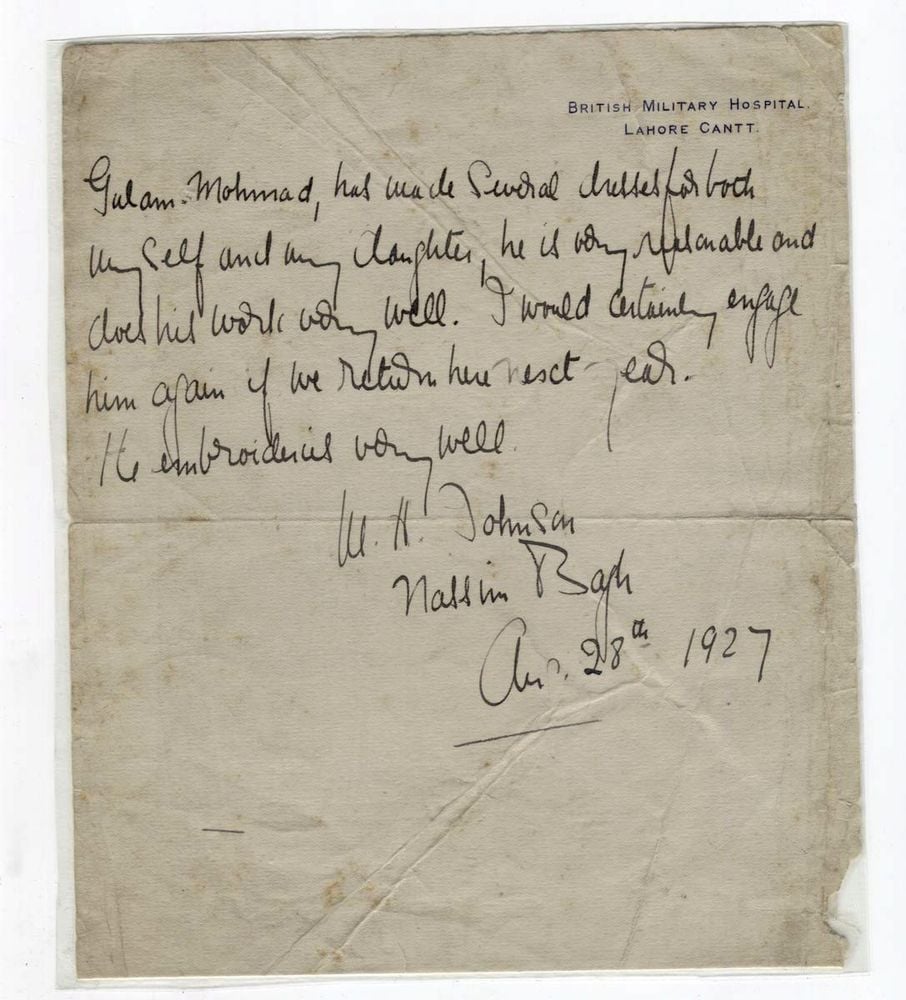 BRITISH MILITARY HOSPITAL.
LAHORE CANTT.
Gulam. Mohmad, has made several dresses for both
my self and my daughter, he is very reasonable and
does his work very well. I would certainly engage
him again if we return here next year.
He embroideries very well.
M. H. Johnson
Nassim Bagh
Aug. 28th 1927